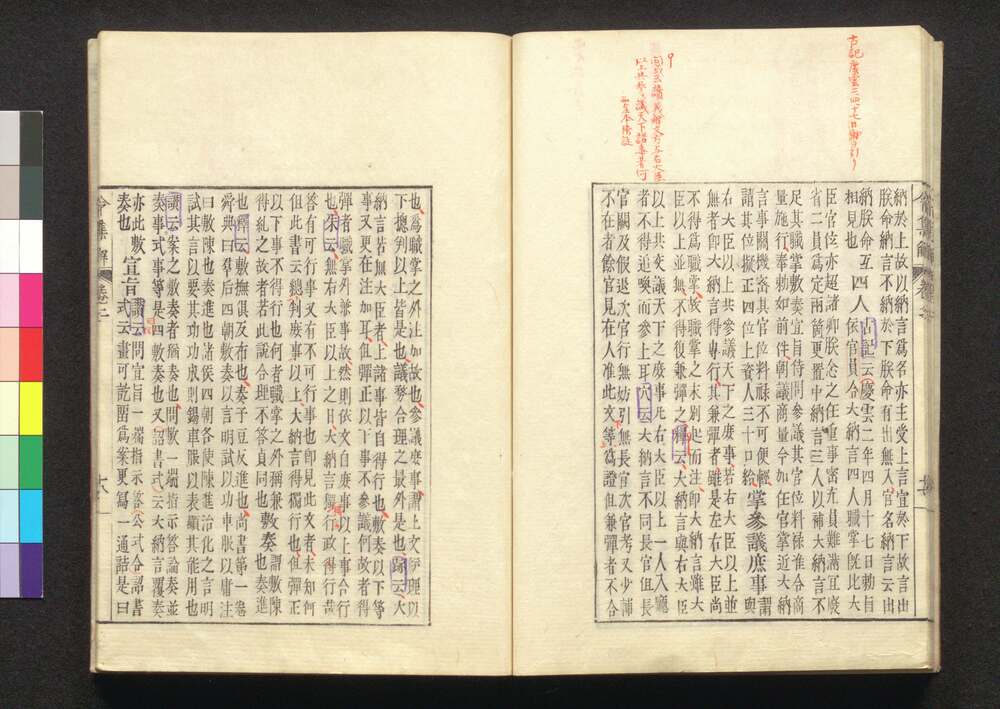 古記慶雲三四十七日勅ヲ引ク
納於上故以納言爲名亦主受上言宣於下故言出
朕命納言不納於下朕命有出無入官名納言云出
納朕命互
相見也
四人
古記云慶雲二年四月十七日勅旨
依官員令大納言四人職掌既比大
臣官位亦超諸卿朕念之任重事密充員難滿宜廢
省二員爲定兩箇更置中納言三人以補大納言不
足其職掌敷奏宣旨侍問參議其官位料祿准令商
量施行奉勅如前件朝議商量令如在官掌近大納
言事關機密其官位料祿不可便輕
請其位擬正四位上資人三十口給
掌參議庶事
謂
與
右大臣以上共參議天下之庶事若右大臣以上並
無者卽大納言得專行其兼彈者雖是左右大臣尚
不得爲職掌故職掌之末別起而注卽大納言雖大
臣以上並無不得復兼彈之釋云大納言與右大臣
以上共交議天下之庶事此右大臣以上一人入廳
者不得近喚而參上耳穴云大納言不同長官但長
官闕及假退次官行無妨引無長官次官考又少補
不在者餘官見在人准此文等爲證但兼彈者不合
令集解 卷三
也爲職掌之外注加故也參議庶事謂上文伊理以
下揔判以上皆是也議務合理之最外是也跡云大
納言若無大臣者上諸事皆自得行也敷奏以下等
事又更在注加耳但彈正以下事不參議何故者得
彈者職掌外兼事故然則依文自庶事以上事合行
也朱云無右大臣以上之日大納言獨行政得行哉
答有可行事又有不可行事也卽見此文者未知何
但此書云總判庶事以上大納言得獨行也但彈正
以下事不得行也何者職掌之外稱兼敷奏也
得糺之故者若此說合理不答貞同也
敷奏
謂敷陳
也奏進
也釋云敷撫俱及布也奏子豆反進也尚書第一卷
舜典曰羣后四朝敷奏以言明試以功車服以庸注
曰敷陳也奏進也諸侯四朝各使陳進治化之言明
試其言以要其功功成則錫車服以表顯其能用也
讃云案之敷奏者猶奏也問敷一端指示答論奏並
奏事式事等是四敷奏也又詔書式云大納言覆奏
亦此敷
奏也
宣旨
讃云問宣旨一端指示答公式令詔書
式云畫可訖留爲案更寫一通誥是曰
令集解 卷三